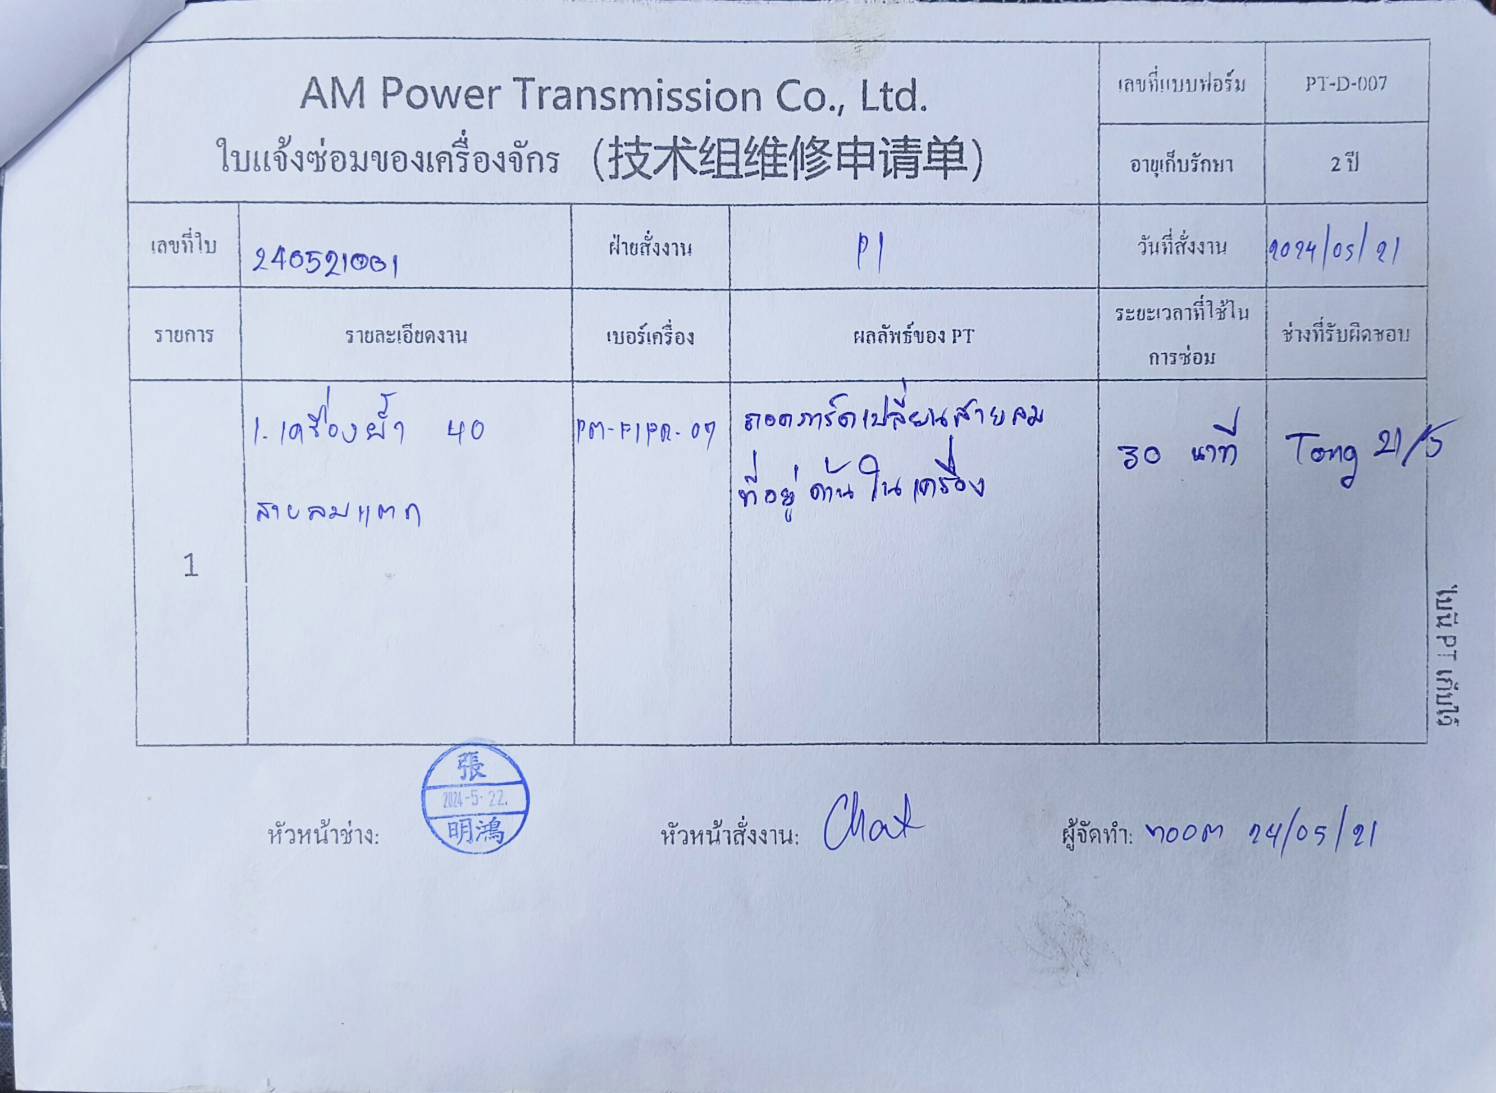 AM Power Transmission Co., Ltd.
ใบแจ้งซ่อมของเครื่องจักร (技术组维修申请单)
เลขที่แบบฟอร์ม PT-D-007
อายุเก็บรักษา 2 ปี
เลขที่ใบ 240521001 ฝ่ายสั่งงาน P1 วันที่สั่งงาน 2024/05/21
รายการ รายละเอียดงาน เบอร์เครื่อง ผลลัพธ์ของ PT ระยะเวลาที่ใช้ใน ช่างที่รับผิดชอบ
การซ่อม
1. เครื่องย้ำ 40 ถอดการ์ดเปลี่ยนสายลม 30 นาที Tong 21/5
สายลมแตก ที่อยู่ด้านในเครื่อง
1
ใบนี้ PT เก็บไว้
หัวหน้าช่าง: 張 2024-5-22. 明鴻
หัวหน้าสั่งงาน: Chat
ผู้จัดทำ: 24/05/21